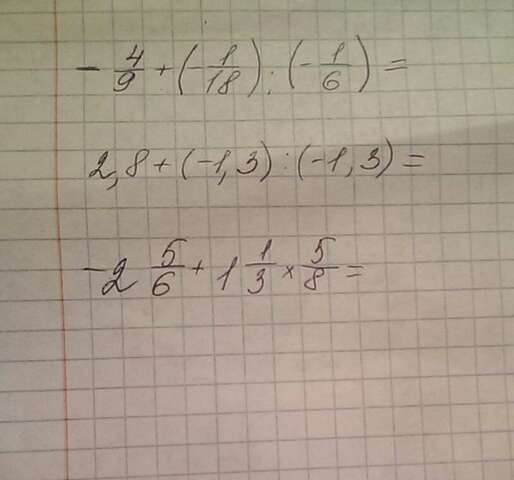 - 4/9 + (- 1/18) : (- 1/6) =
2,8 + (-1,3) : (-1,3) =
-2 5/6 + 1 1/3 × 5/8 =